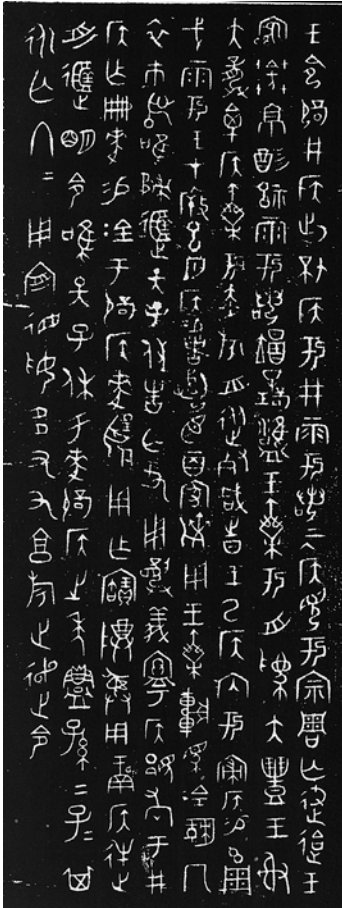 王令辟井侯出坏侯于井雩若二月侯見于宗周亡尤會王
客葊京酌祀雩若翌日在璧雍王乘于舟為大豐王射
大龏禽侯乘于赤旂舟從死咸之日王以侯內于寑侯易玄周
戈雩王在斥巳夕侯易者臣二百家劑用王乘車馬金勒冂
衣巿舄唯歸揚天子休告亡尤用龏義寧侯顯孝于井
侯乍冊麥易金于辟侯麥揚用乍寶尊彝用鬲侯逆
揚明令唯天子休于麥辟侯之年鑄孫=子=其
永亡冬=用造德妥多友享奔走令